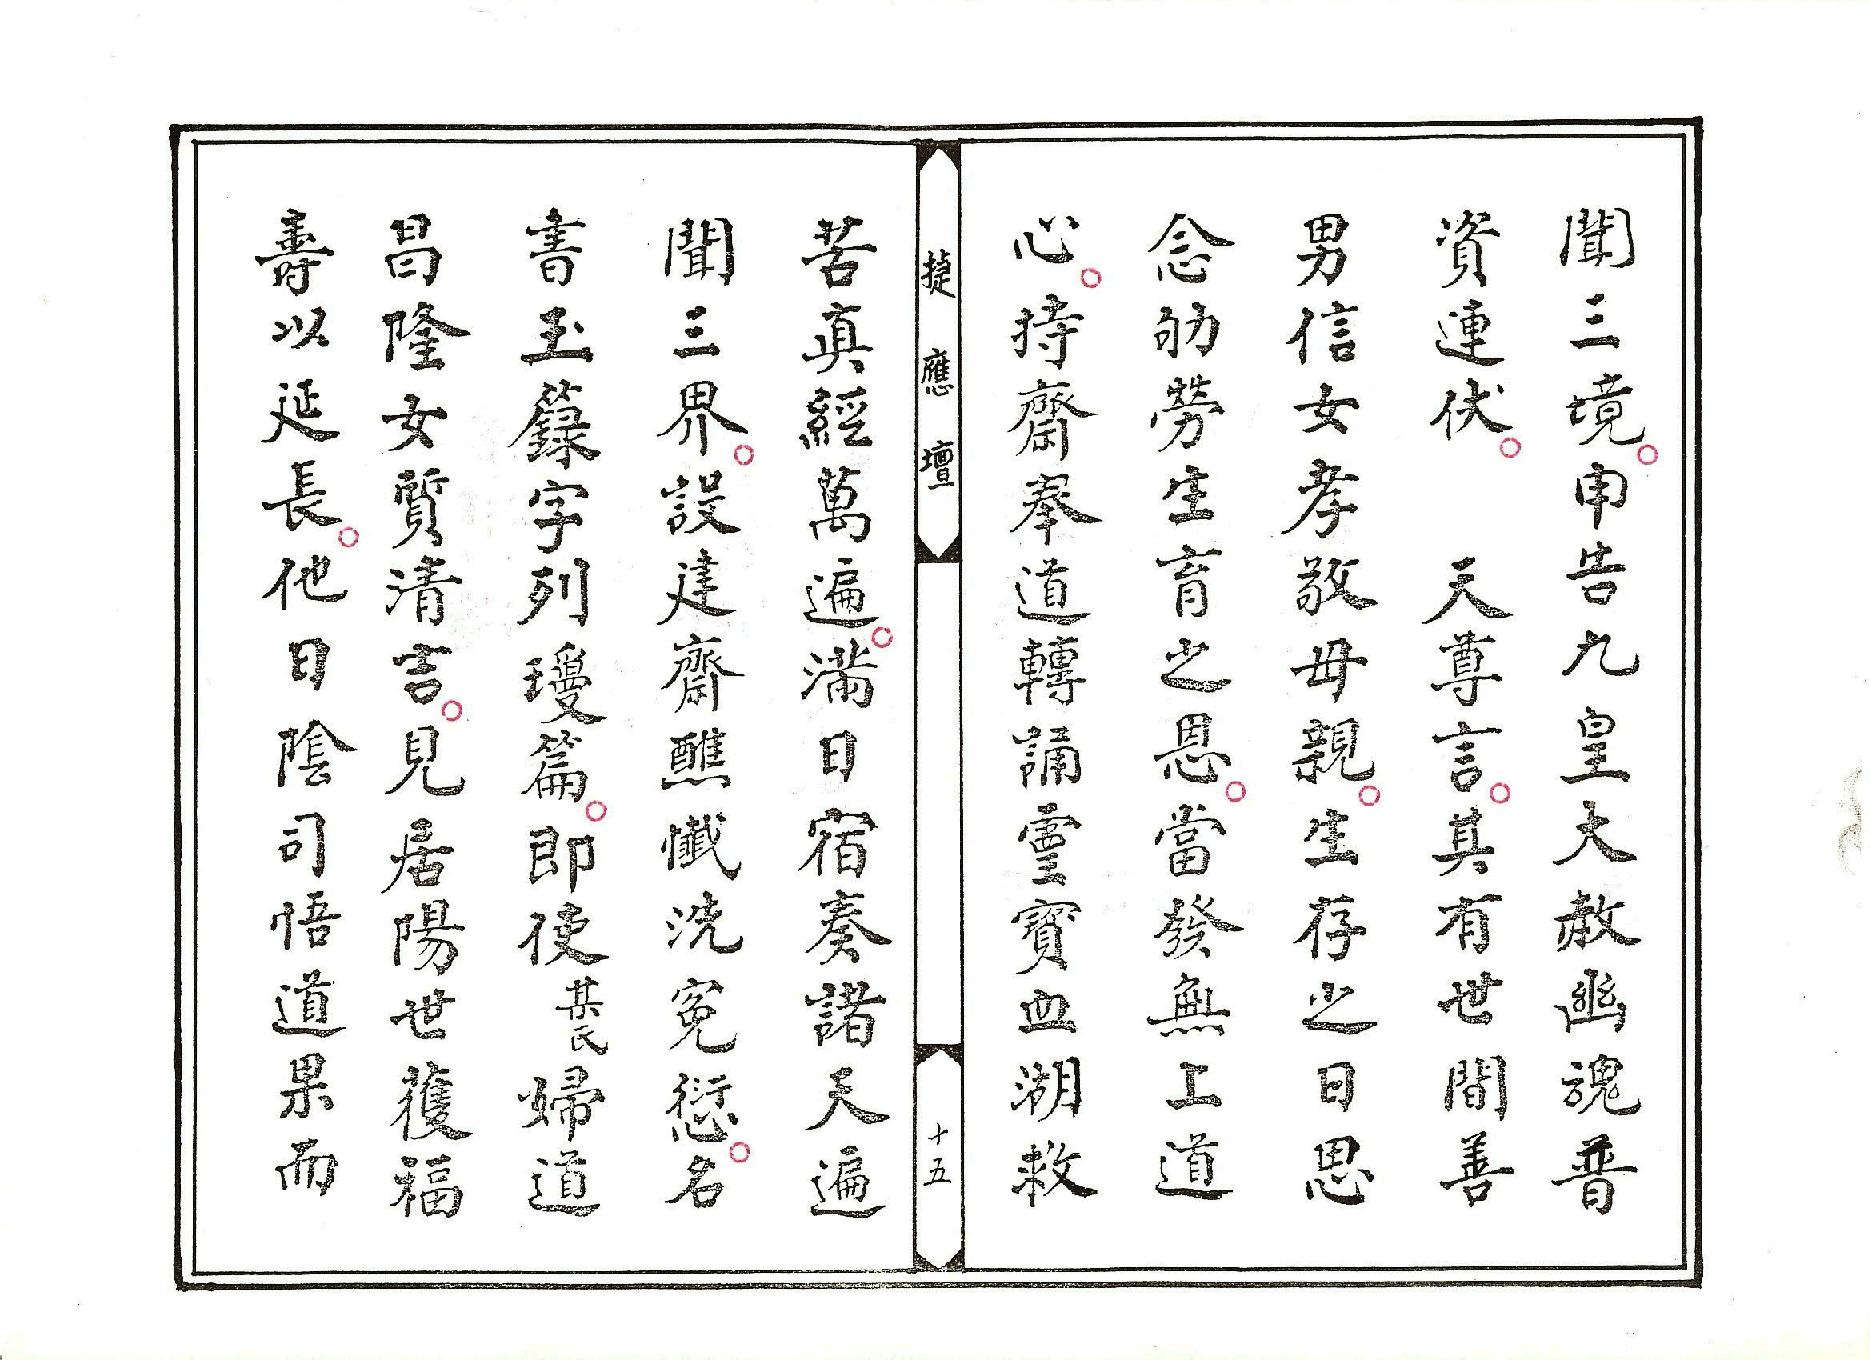 聞三境。申告九皇大赦幽魂普
資連伏。　天尊言。其有世間善
男信女孝敬母親。生存之日思
念劬勞生育之恩。當發無上道
心。持齋奉道轉誦靈寶血湖救
捷應壇
十五
苦真經萬遍。滿日宿奏諸天遍
聞三界。設建齋醮懺洗冤愆。名
書玉籙字列瓊篇。即使某氏婦道
昌隆女質清吉。見居陽世獲福
壽以延長。他日陰司悟道果而